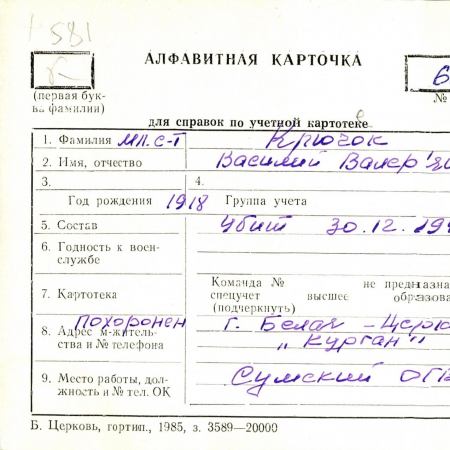 581
АЛФАВИТНАЯ КАРТОЧКА
К
6
(первая бук-
ва фамилии)
№
для справок по учетной картотеке
1. Фамилия мл. с-т Крючок
2. Имя, отчество Василий Валер'
3. 4.
Год рождения 1918 Группа учета
5. Состав Убит 30.12.19
6. Годность к воен-
службе
Команда № не предназна
7. Картотека спецучет высшее образова
(подчеркнуть)
похоронен г. Белая - Церк
8. Адрес м-житель-
ства и № телефона "Курган"
9. Место работы, дол-
жность и № тел. ОК Сумский ОГВ
Б. Церковь, гортип., 1985, з. 3589—20000